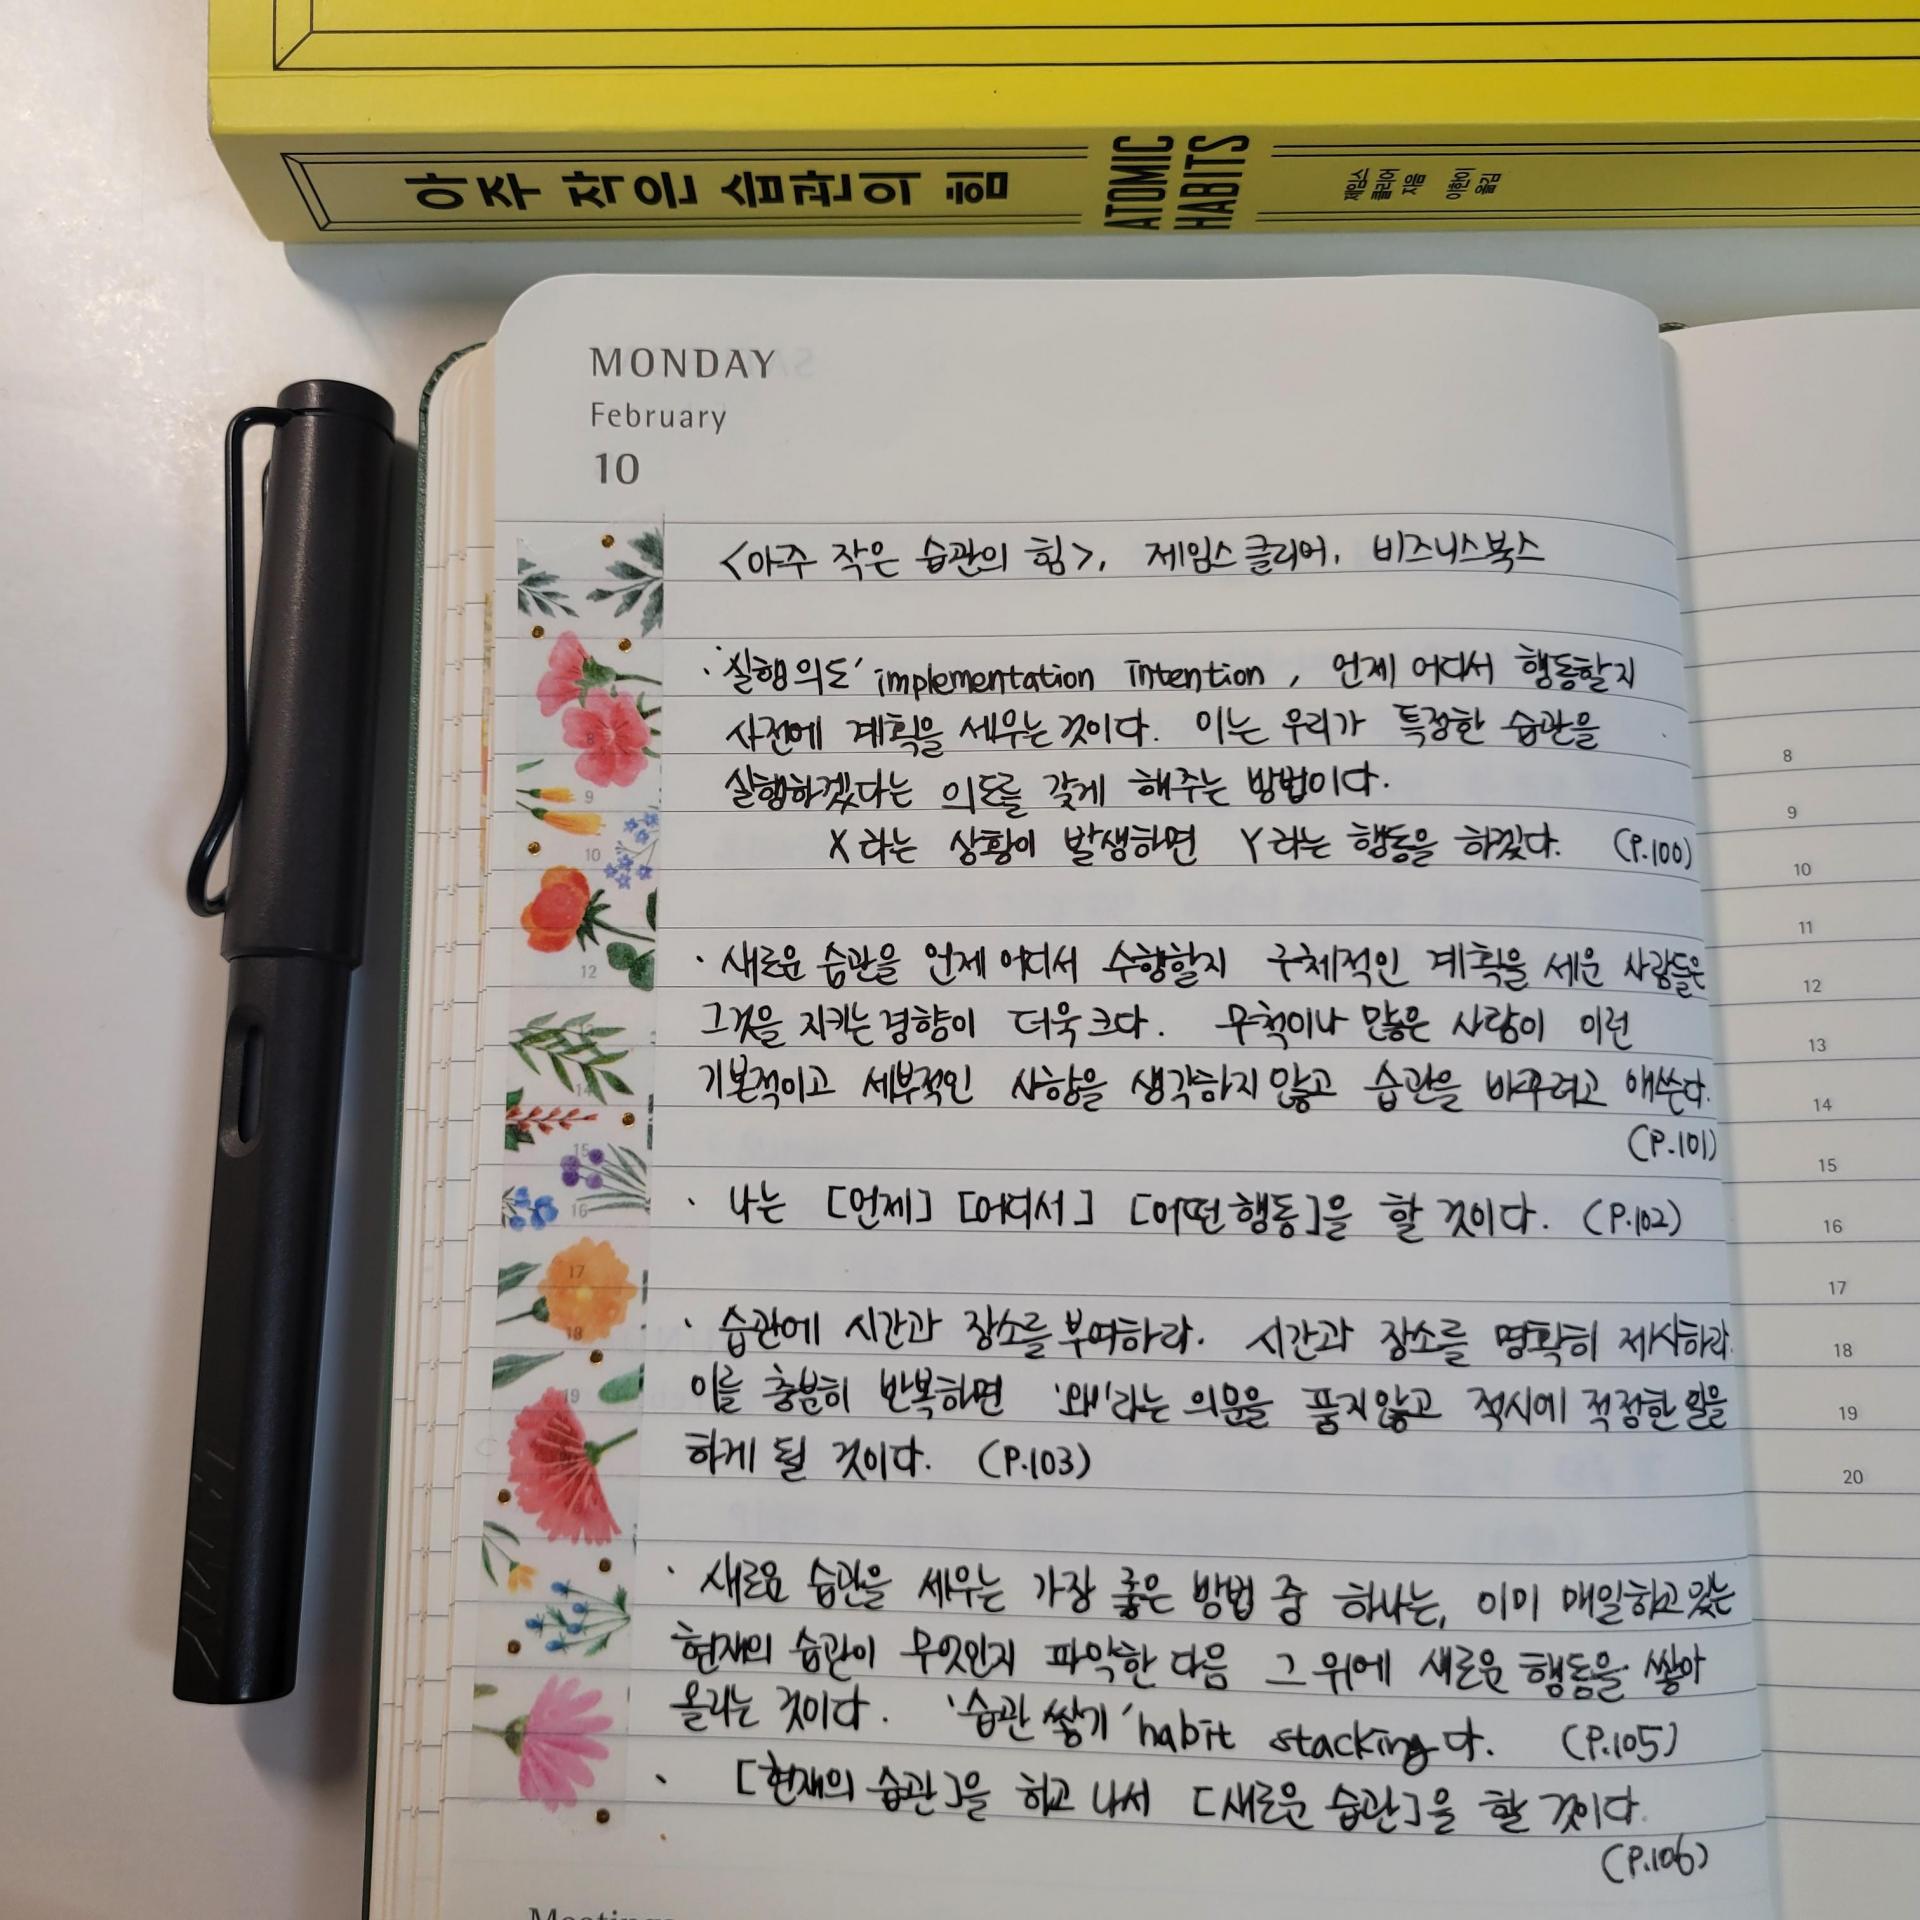 아주 작은 습관의 힘
ATOMIC
HABITS
제임스
클리어
지음
이한이
옮김
MONDAY
February
10
<아주 작은 습관의 힘>, 제임스클리어, 비즈니스북스
· '실행의도' implementation intention, 언제 어디서 행동할지
사전에 계획을 세우는 것이다. 이는 우리가 특정한 습관을
실행하겠다는 의도를 갖게 해주는 방법이다.
X라는 상황이 발생하면 Y라는 행동을 하겠다. (P.100)
· 새로운 습관을 언제 어디서 수행할지 구체적인 계획을 세운 사람들은
그것을 지키는 경향이 더욱 크다. 무척이나 많은 사람이 이런
기본적이고 세부적인 사항을 생각하지 않고 습관을 바꾸려고 애쓴다.
(P.101)
· 나는 [언제] [어디서] [어떤 행동]을 할 것이다. (P.102)
· 습관에 시간과 장소를 부여하라. 시간과 장소를 명확히 제시하라.
이를 충분히 반복하면 '왜'라는 의문을 품지 않고 적시에 적정한 일을
하게 될 것이다. (P.103)
· 새로운 습관을 세우는 가장 좋은 방법 중 하나는, 이미 매일하고 있는
현재의 습관이 무엇인지 파악한 다음 그 위에 새로운 행동을 쌓아
올리는 것이다. '습관 쌓기' habit stacking다. (P.105)
· [현재의 습관]을 하고 나서 [새로운 습관]을 할 것이다.
(P.106)
8
9
10
12
14
15
16
17
18
19
8
9
10
11
12
13
14
15
16
17
18
19
20
LAMY